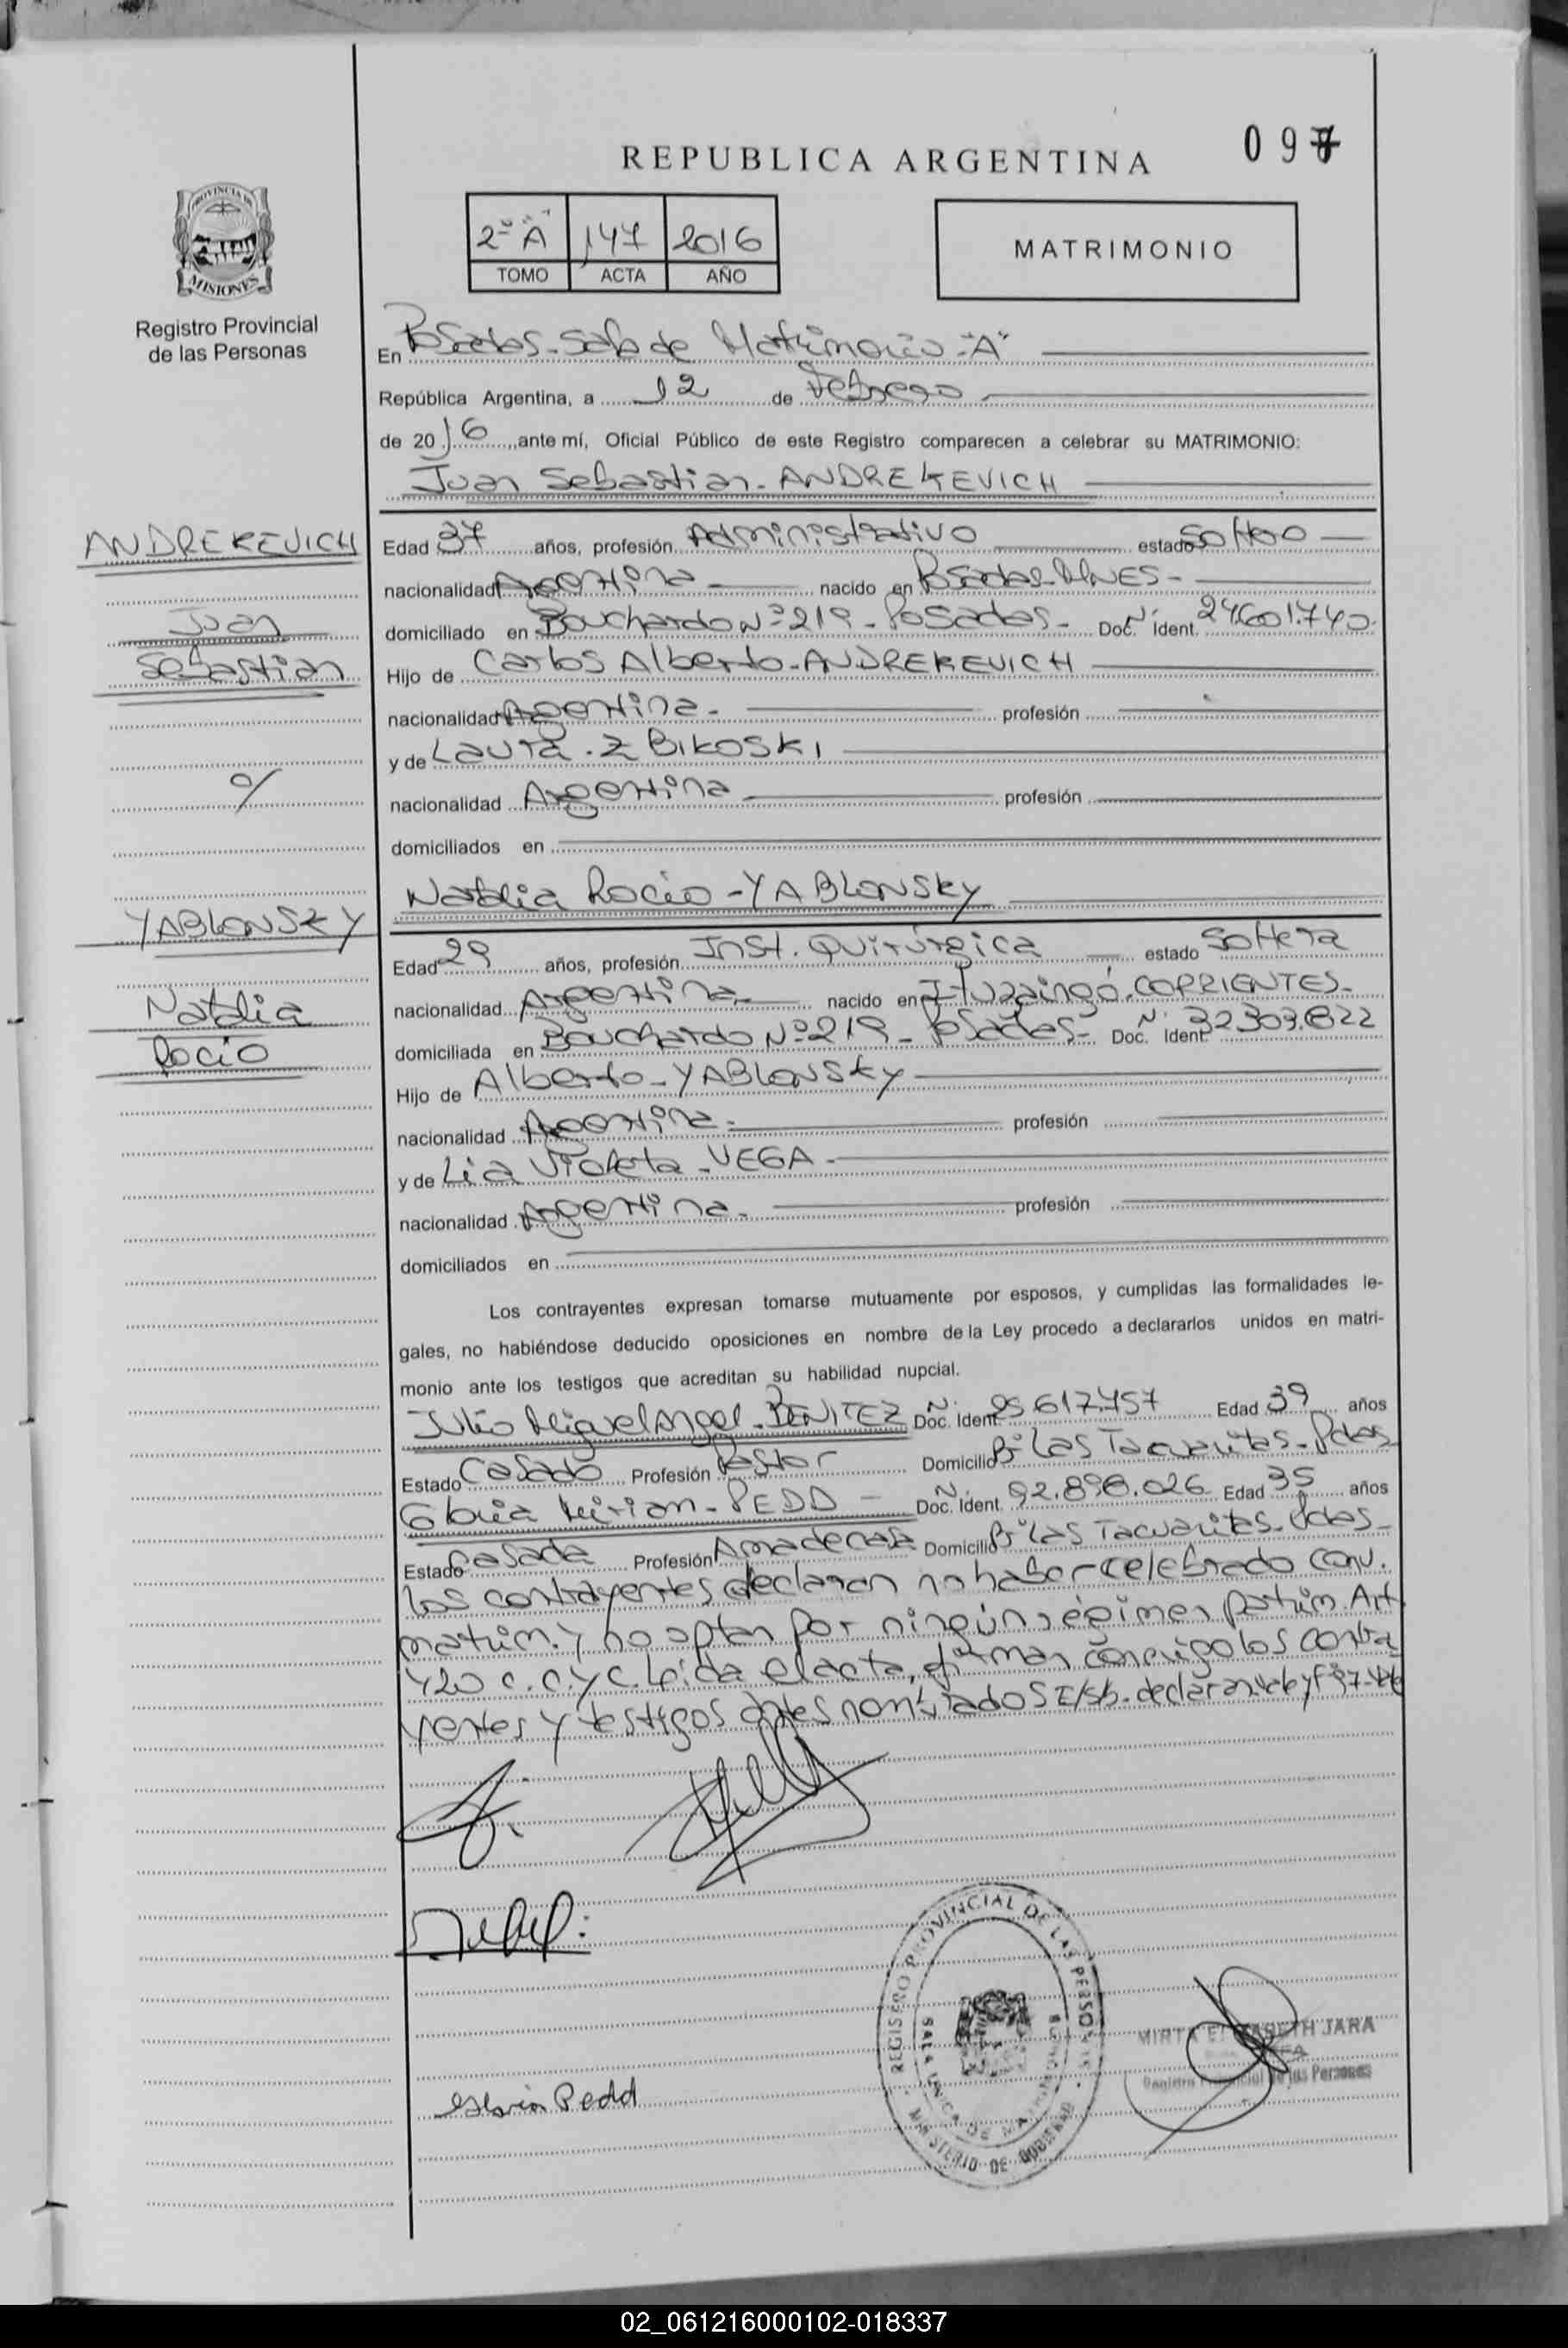 REPUBLICA ARGENTINA
097
PROVINCIA DE
MISIONES
Registro Provincial
de las Personas
2º "A" 147 2016
TOMO ACTA AÑO
MATRIMONIO
En Posadas-Sala de Matrimonio-"A"
República Argentina, a 12 de Febrero
de 2016, ante mí, Oficial Público de este Registro comparecen a celebrar su MATRIMONIO:
Juan Sebastian-ANDREKEVICH
ANDREKEVICH
Juan
Sebastian
Edad 37 años, profesión Administrativo estado Soltero
nacionalidad Argentina nacido en Posadas-Mnes-
domiciliado en Bouchardo Nº 219-Posadas- Doc. Ident. Nº 27.601.740
Hijo de Carlos Alberto-ANDREKEVICH
nacionalidad Argentina- profesión
y de Laura-ZBIKOSKI
nacionalidad Argentina profesión
domiciliados en
Natalia Rocio-YABLONSKY
YABLONSKY
Natalia
Rocio
Edad 29 años, profesión Inst. Quirúrgica estado Soltera
nacionalidad Argentina- nacido en Ituzaingó-CORRIENTES-
domiciliada en Bouchardo Nº 219-Posadas- Doc. Ident. Nº 32.309.822
Hijo de Alberto-YABLONSKY
nacionalidad Argentina- profesión
y de Lia Violeta-VEGA-
nacionalidad Argentina- profesión
domiciliados en
Los contrayentes expresan tomarse mutuamente por esposos, y cumplidas las formalidades le-
gales, no habiéndose deducido oposiciones en nombre de la Ley procedo a declararlos unidos en matri-
monio ante los testigos que acreditan su habilidad nupcial.
Julio Miguel Angel-BENITEZ Doc. Ident. Nº 25.617.457 Edad 39 años
Estado Casado Profesión Pastor Domicilio Bº Las Tacuaritas-Pdas
Gloria Mirian-PEDD- Doc. Ident. Nº 92.898.026 Edad 35 años
Estado Casada Profesión Ama de casa Domicilio Bº Las Tacuaritas-Pdas-
Los contrayentes declaran no haber celebrado conv.
matrim. y no optan por ningún régimen patrim. Art
420 C.C.y C. Leida el acta, firman conmigo los contra
yentes y testigos antes nombrados E/Sb-declaran
Gloria Pedd
REGISTRO PROVINCIAL DE LAS PERSONAS
SALA UNICA DE MATRIMONIOS
MINISTERIO DE GOBIERNO
MIRTA ELIZABETH JARA
JEFA
Registro Provincial de las Personas
02_061216000102-018337